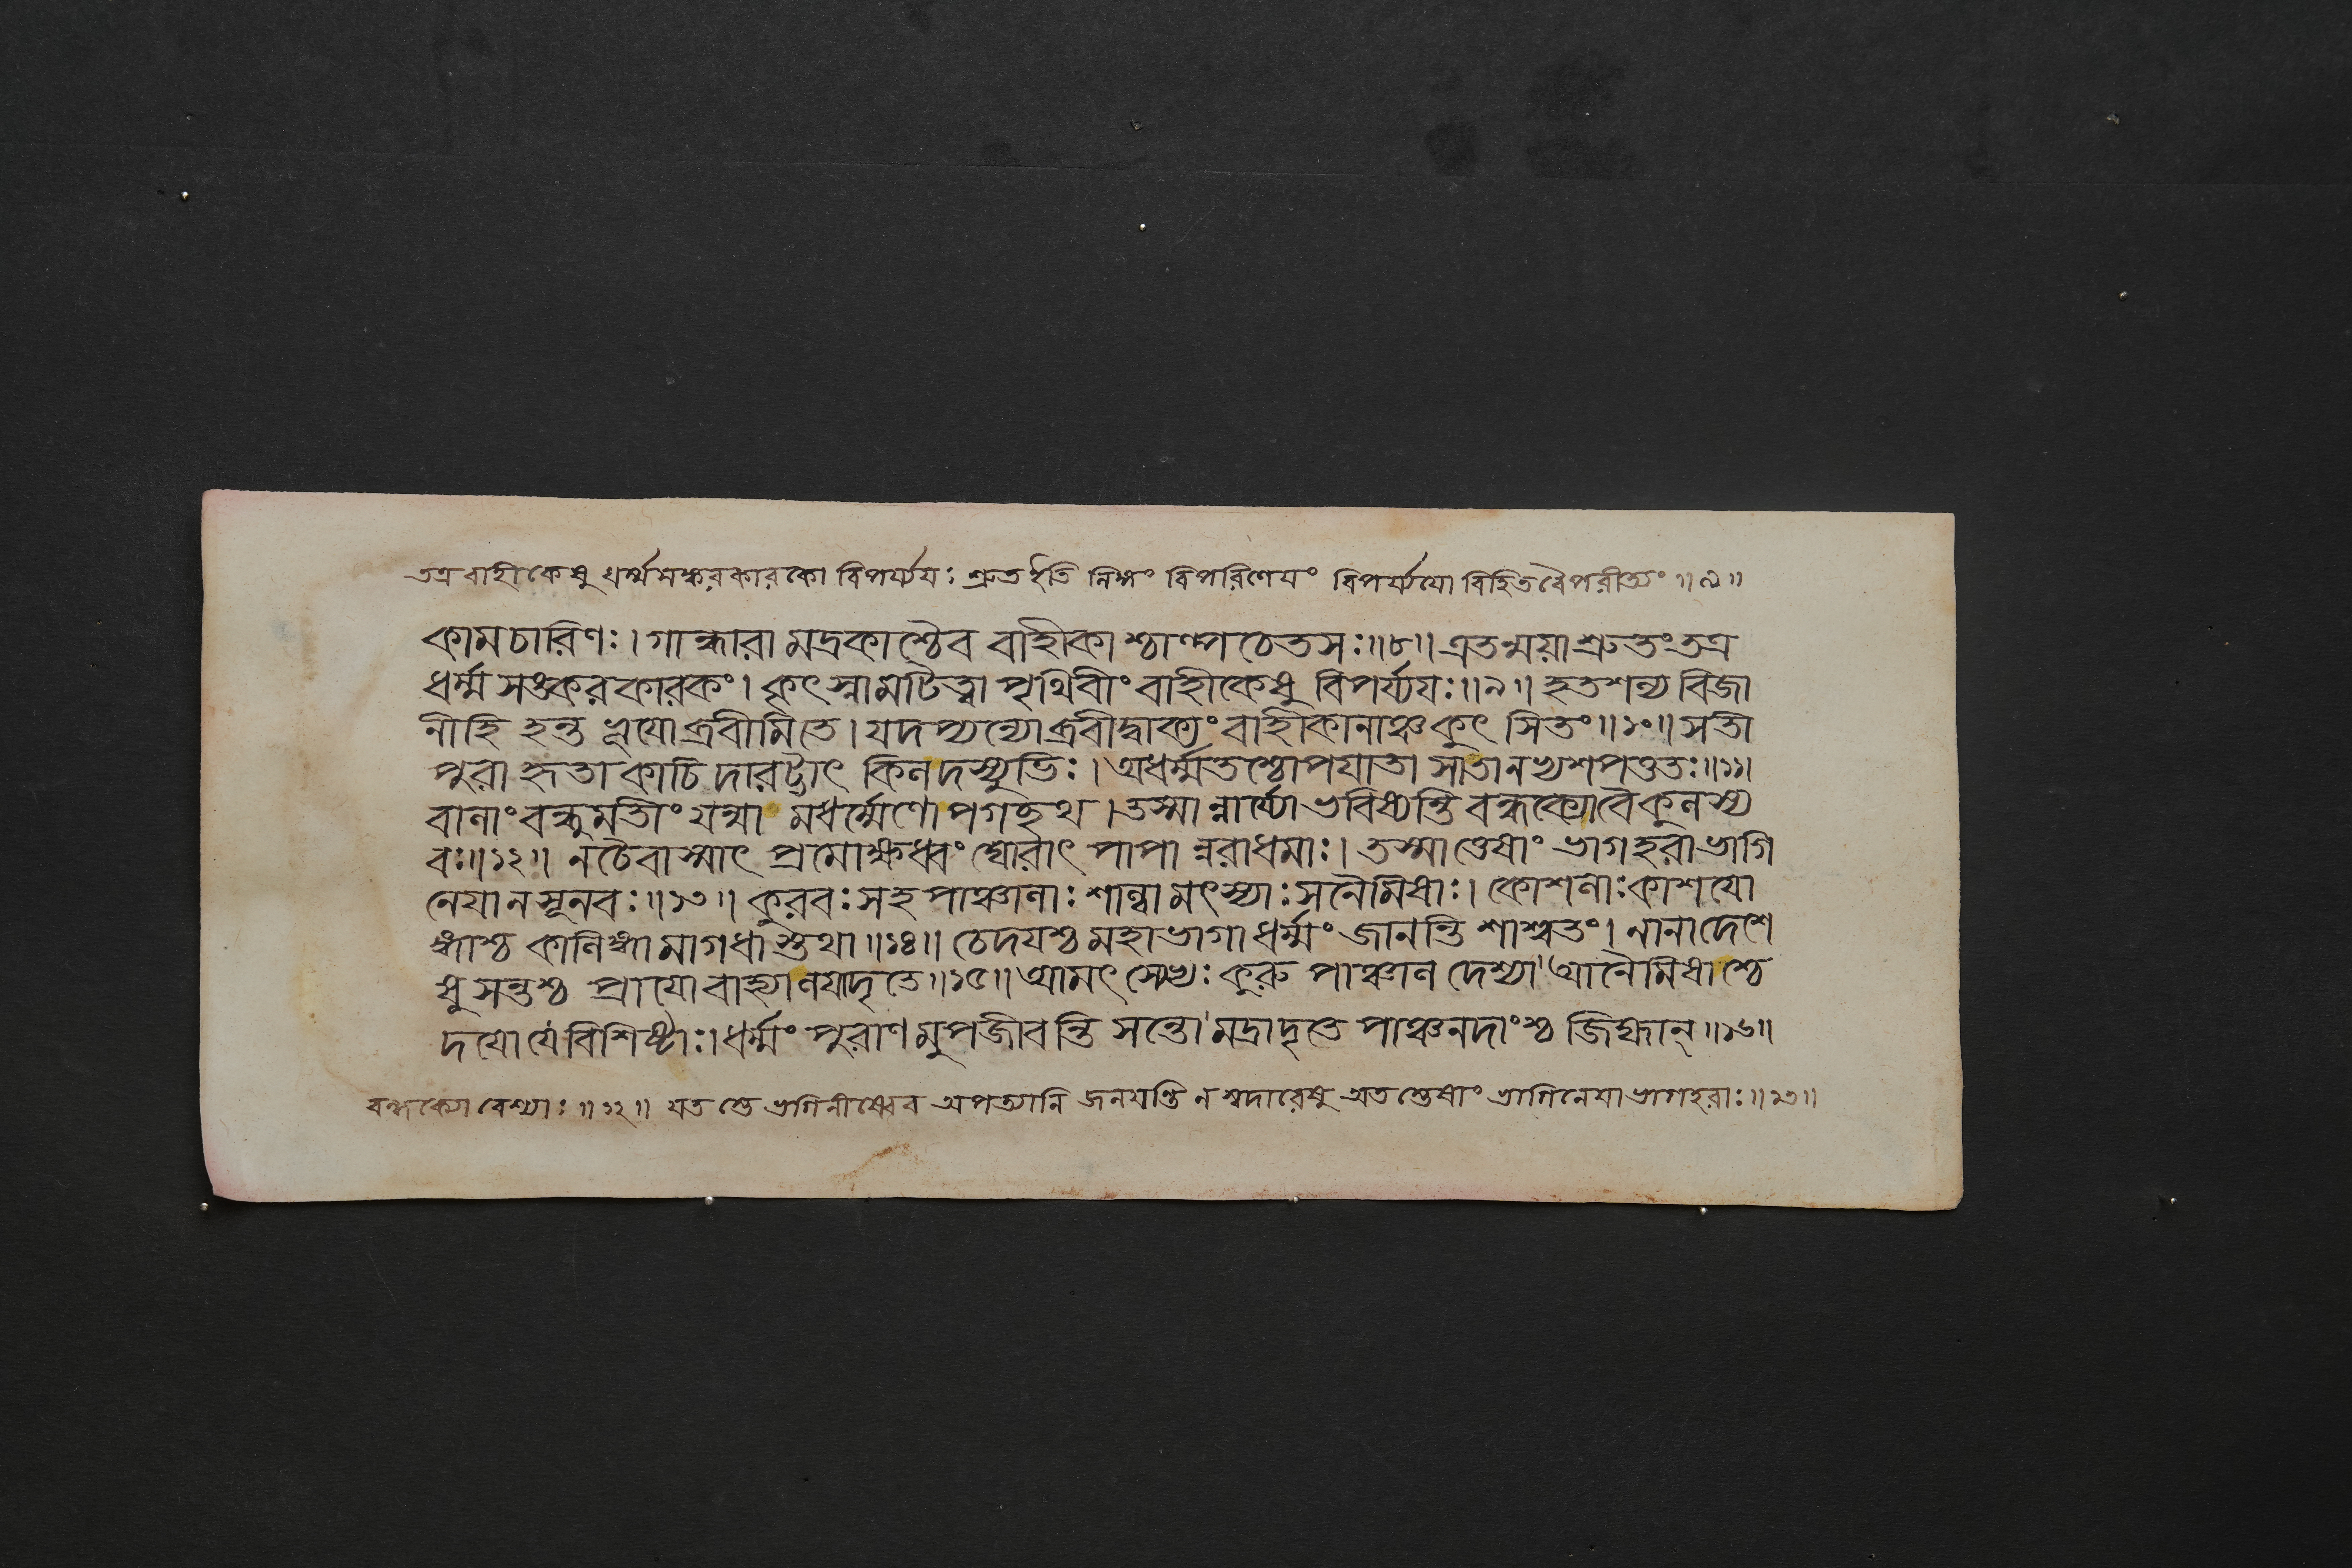 তত্র বাহীকেষু ধর্ম্মসঙ্করকারকো বিপর্য্যয়ঃ শ্রুত ইতি লিঙ্গং বিপরিণেয়ং বিপর্য্যয়ো বিহিতবৈপরীত্যং ॥৯॥
কামচারিণঃ। গান্ধারা মদ্রকাশ্চৈব বাহীকাশ্চাল্পচেতসঃ॥৮॥ এতন্ময়া শ্রুতং তত্র
ধর্ম্মসঙকরকারকং। কৃৎস্নামটিত্বা পৃথিবীং বাহীকেষু বিপর্য্যয়ঃ॥৯॥ হতশল্য বিজা
নীহি হন্ত ভূয়ো ব্রবীমি তে। যদপ্যন্যোব্রবীদ্বাক্যং বাহীকানাঞ্চ কুৎসিতং॥১০॥ সতী
পুরা হৃতা কাচিদারট্টাৎ কিল দস্যুভিঃ। অধর্ম্মতশ্চোপযাতা সা তানভ্যশপত্ততঃ॥১১॥
বালাং বন্ধুমতীং যন্মা মধর্ম্মেণোপগচ্ছথ। তস্মান্নার্য্যো ভবিষ্যন্তি বন্ধক্যো বৈ কুলস্য
বঃ॥১২॥ নচৈবাস্মাৎ প্রমোক্ষধ্বং ঘোরাৎ পাপান্নরাধমাঃ। তস্মাত্তেষাং ভাগহরা ভাগি
নেয়া ন সূনবঃ॥১৩॥ কুরবঃ সহ পাঞ্চালাঃ শাল্বা মৎস্যাঃ সনৈমিষাঃ। কোশলাঃ কাশয়ো
ঙ্গাশ্চ কালিঙ্গা মাগধাস্তথা॥১৪॥ চেদয়শ্চ মহাভাগা ধর্ম্মং জানন্তি শাশ্বতং। নানাদেশে
ষু সন্তশ্চ প্রায়ো বাহ্যা লয়াদৃতে॥১৫॥ আমৎস্যেভ্যঃ কুরু পাঞ্চাল দেশ্যা আনৈমিষাচ্চে
দয়ো যে বিশিষ্টাঃ। ধর্ম্মং পুরাণমুপজীবন্তি সন্তো মদ্রাদৃতে পাঞ্চনদাংশ্চ জিহ্মান্॥১৬॥
বন্ধক্যো বেশ্যাঃ॥১২॥ যতস্তে ভগিনীষ্বেব অপত্যানি জনয়ন্তি ন স্বদারেষু অতস্তেষাং ভাগিনেয়া ভাগহরাঃ॥১৩॥